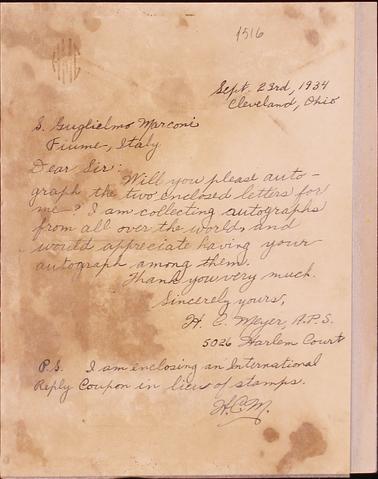 1516
Sept. 23rd, 1934
Cleveland, Ohio
S. Guglielmo Marconi
Fiume, Italy
Dear Sir:
Will you please auto-
graph the two enclosed letters for
me? I am collecting autographs
from all over the world, and
would appreciate having your
autograph among them.
Thank you very much.
Sincerely yours,
H. C. Meyer, A.P.S.
5026 Harlem Court
P.S. I am enclosing an International
Reply Coupon in lieu of stamps.
H.C.M.